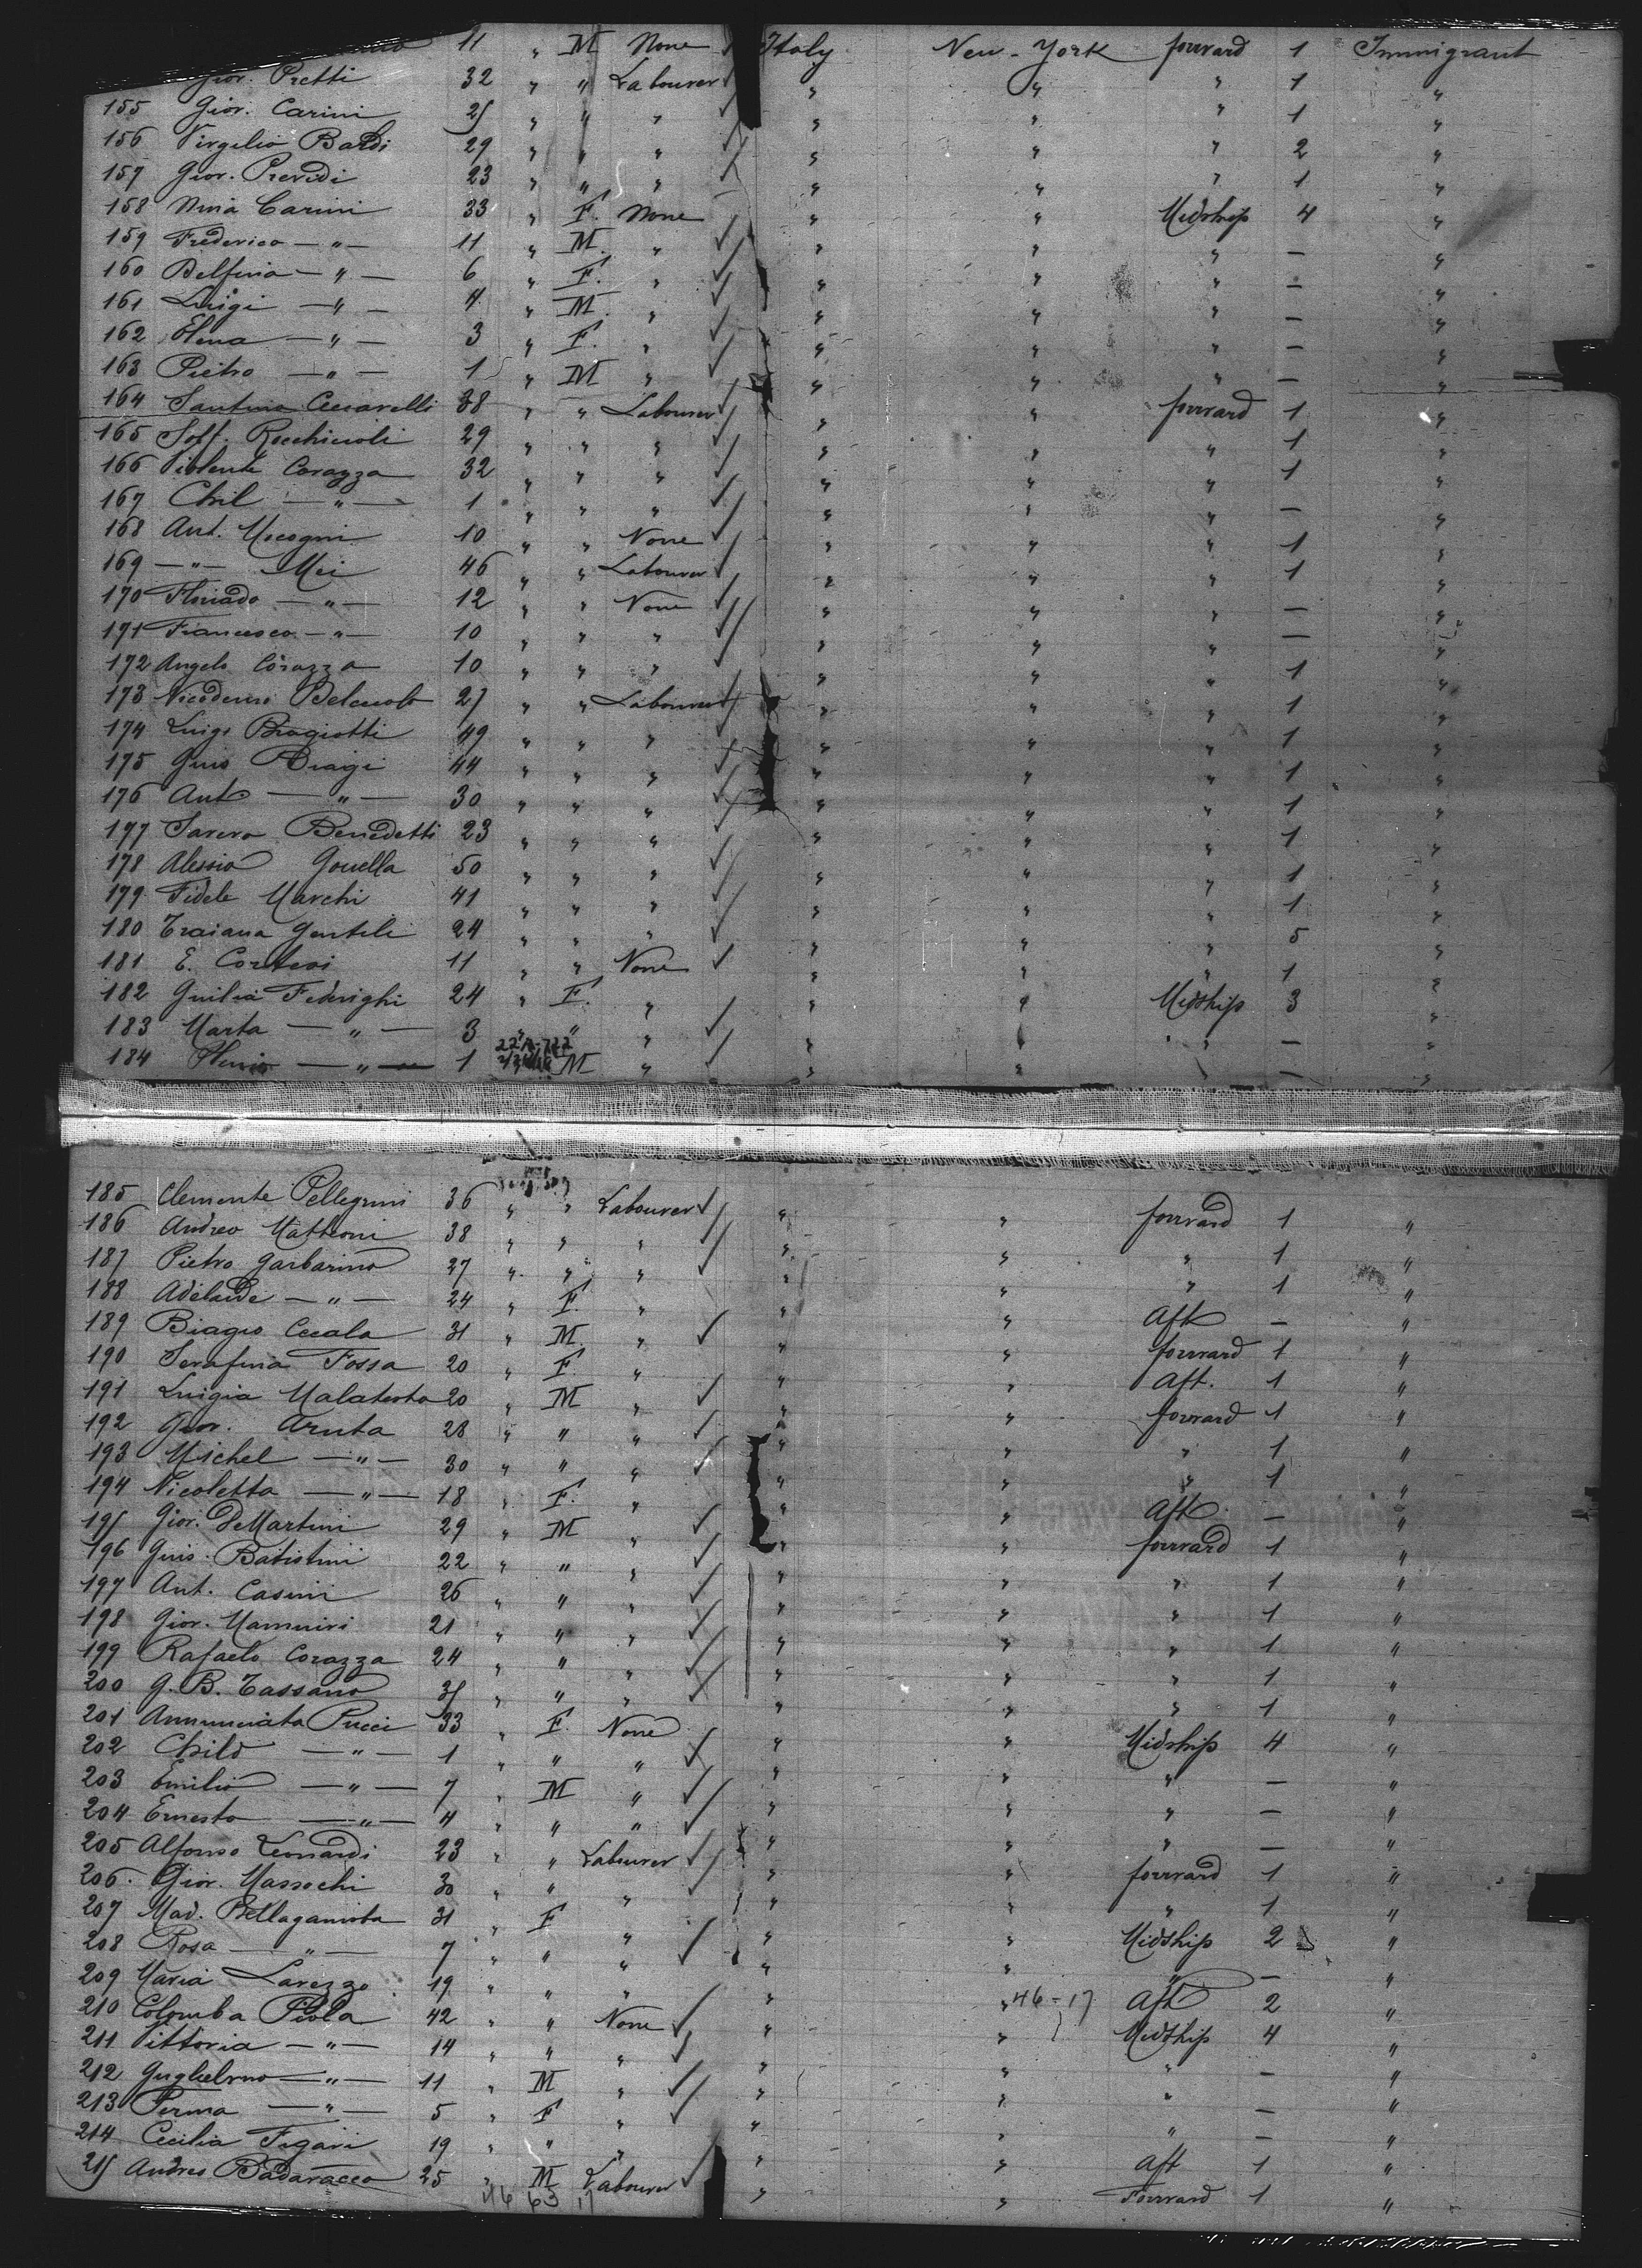 11 " M None Italy New-York forward 1 Immigrant
Gior. Pretti 32 " " Labourer " " " 1 "
155 Gior. Carini 25 " " " " " " 1 "
156 Virgilio Bardi 29 " " " " " " 2 "
157 Gior. Prevedi 23 " " " " " " 1 "
158 Nina Carini 33 " F. None " " Midship 4 "
159 Frederico —"— 11 " M. " " " " — "
160 Delfina —"— 6 " F. " " " " — "
161 Luigi —"— 4 " M. " " " " — "
162 Elena —"— 3 " F. " " " " — "
163 Pietro —"— 1 " M " " " " — "
164 Santino Ceccarelli 38 " " Labourer " " forward 1 "
165 Soff. Rocchiccioli 29 " " " " " " 1 "
166 Violente Corazza 32 " " " " " " 1 "
167 Chil —"— 1 " " " " " " — "
168 Ant. Micogni 10 " " None " " " 1 "
169 —"— Mei 46 " " Labourer " " " 1 "
170 Floriado —"— 12 " " None " " " — "
171 Francesco —"— 10 " " " " " " — "
172 Angelo Corazza 10 " " " " " " 1 "
173 Nicodemo 27 " " Labourer " " " 1 "
174 Luigi Bragiotti 49 " " " " " " 1 "
175 Guis Biagi 44 " " " " " " 1 "
176 Ant —"— 30 " " " " " " 1 "
177 Savero Benedetti 23 " " " " " " 1 "
178 Alessio Gonella 50 " " " " " " 1 "
179 Fidele Marchi 41 " " " " " " 1 "
180 Traiana Gentili 24 " " " " " " 5 "
181 E. Cortesi 11 " " None " " " 1 "
182 Guilia Federighi 24 " F. " " " Midship 3 "
183 Marta —"— 3 " " " " " " — "
184 —"— 1 M " " " " — "
185 Clemente Pellegrini 36 " " Labourer " " forward 1 "
186 Andreo Matteoni 38 " " " " " " 1 "
187 Pietro Garbarino 27 " " " " " " 1 "
188 Adelaide —"— 24 " F. " " " Aft — "
189 Biagio Cecala 31 " M " " " forward 1 "
190 Serafina Fossa 20 " F " " " Aft. 1 "
191 Luigia Malatesta 20 " M " " " forward 1 "
192 Gior. Aruta 28 " " " " " " 1 "
193 Michel —"— 30 " " " " " " 1 "
194 Nicoletta —"— 18 " F. " " " Aft — "
195 Gior. DeMartini 29 " M " " " forward 1 "
196 Guis. Batistini 22 " " " " " " 1 "
197 Ant. Casini 26 " " " " " " 1 "
198 Gior. Mannini 21 " " " " " " 1 "
199 Rafaelo Corazza 24 " " " " " " 1 "
200 G. B. Tassano 35 " " " " " " 1 "
201 Annunciata Pucci 33 " F. None " " Midship 4 "
202 Child —"— 1 " " " " " " — "
203 Emilio —"— 7 " M " " " " — "
204 Ernesto —"— 4 " " " " " " — "
205 Alfonso Leonardi 23 " " Labourer " " forward 1 "
206. Gior. Massochi 30 " " " " " " 1 "
207 Mad. Bellagamba 31 " F " " " Midship 2 "
208 Rosa —"— 7 " " " " " " — "
209 Maria Larezzo 19 " " " " " 46-17 Aft 2 "
210 Colomba Piola 42 " " None " " Midship 4 "
211 Vittoria —"— 14 " " " " " " — "
212 Guglielmo —"— 11 " M " " " " — "
213 Perma —"— 5 " F " " " " — "
214 Cecilia Figari 19 " " " " " Aft 1 "
215 Andreo Badaracco 25 " M Labourer " " Forward 1 "
46 63 17